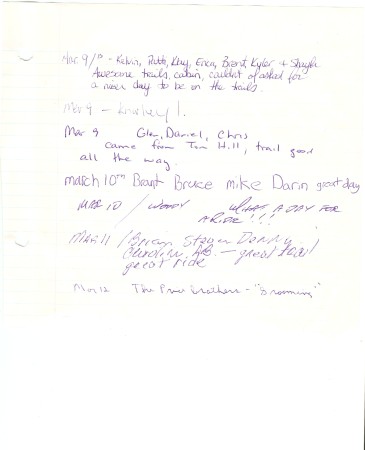 Mar. 9/10 - Kelvin, Robb, Kay, Eren, Brent, Kyler + Shayla
Awesome trails, cabin, couldn't of asked for
a nicer day to be on the trails
Mar 9 -
Mar 9 Glen, Daniel, Chris
came from Tim Hill, trail good
all the way.
March 10th Brant Bruce Mike Darin great day
MAR 10 / WOODY WHAT A DAY FOR
A RIDE!!!
Mar 11 / Brian
- great trail
great ride
Mar 12 The brothers -